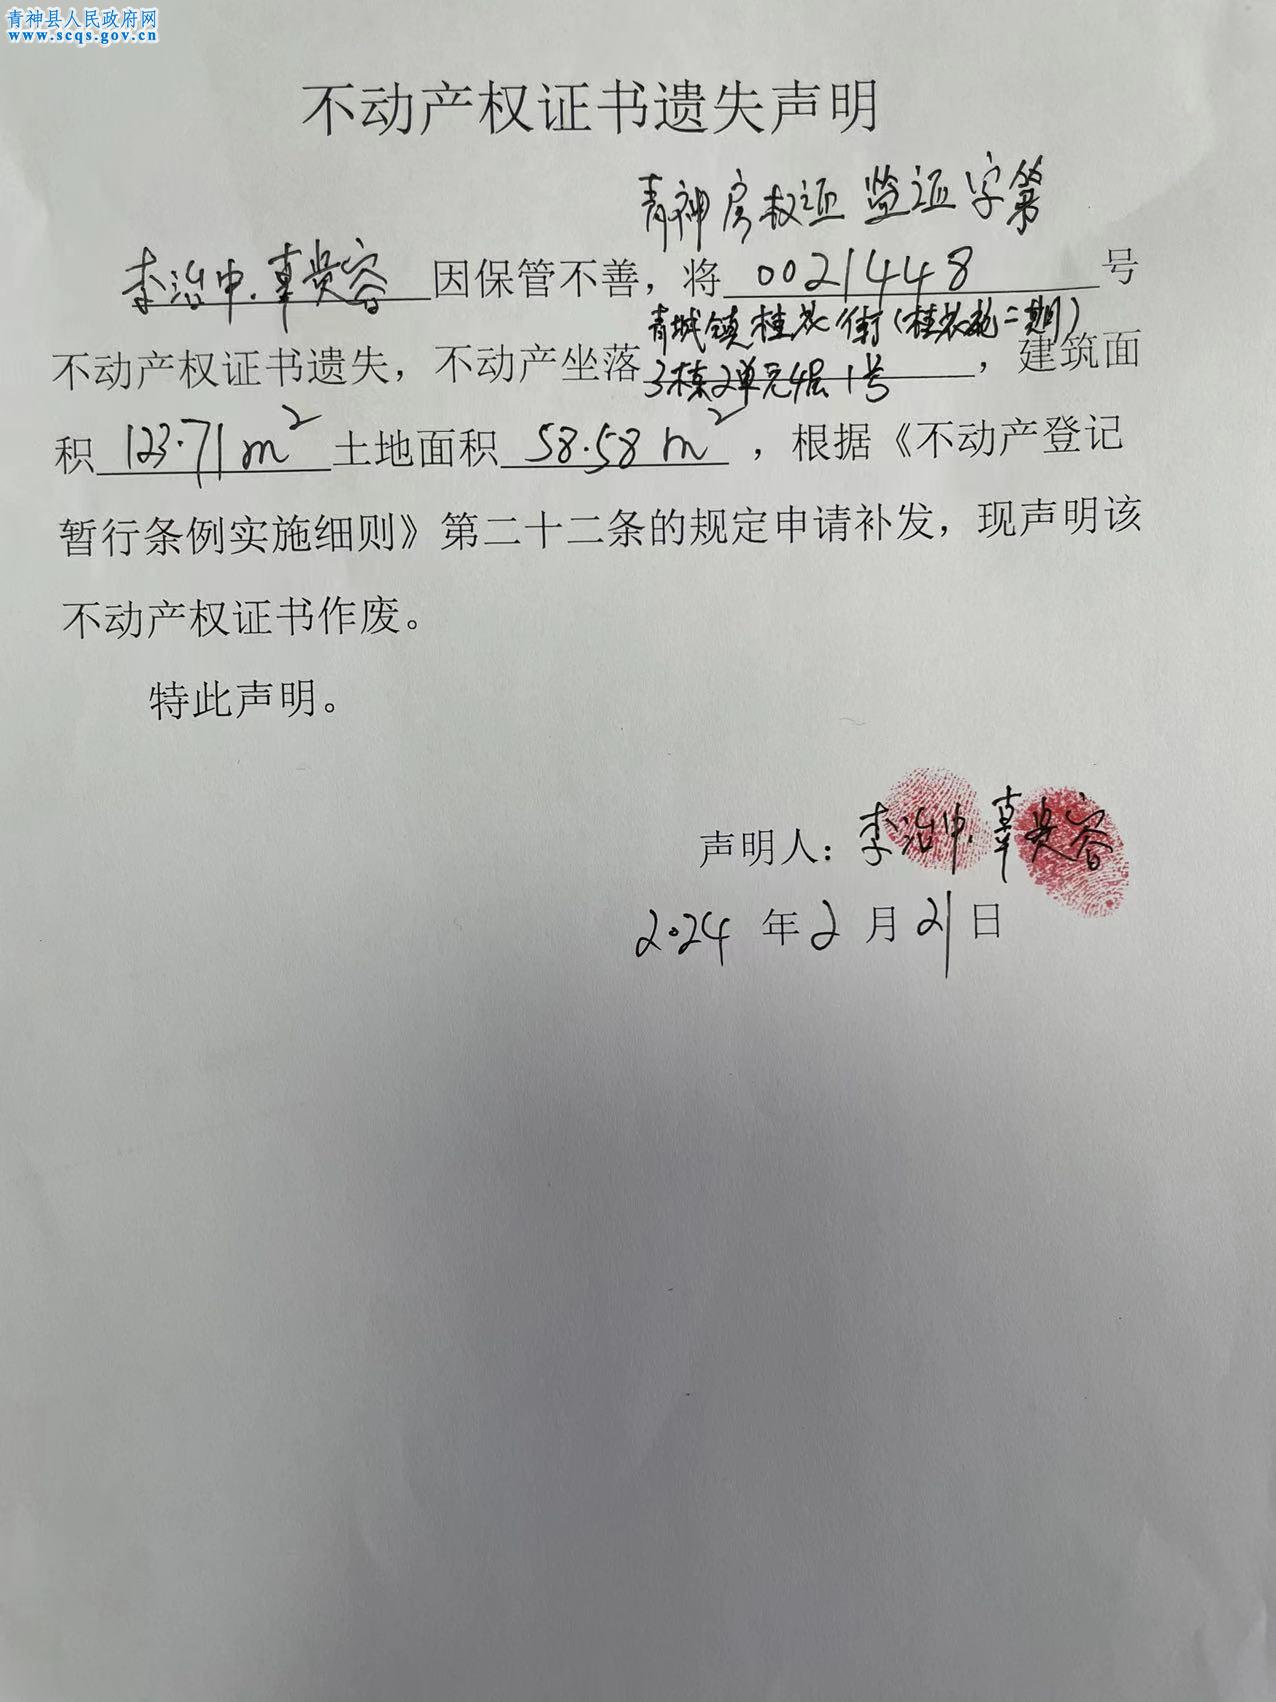 青神县人民政府网
www.scqs.gov.cn
不动产权证书遗失声明
青神房权证监证字第
李治中.辜贵容因保管不善，将0021448号
青城镇桂花街(桂花苑二期)
不动产权证书遗失，不动产坐落3栋2单元4层1号，建筑面
积123.71m²土地面积58.58m²，根据《不动产登记
暂行条例实施细则》第二十二条的规定申请补发，现声明该
不动产权证书作废。
特此声明。
声明人：李治中.辜贵容
2024年2月21日